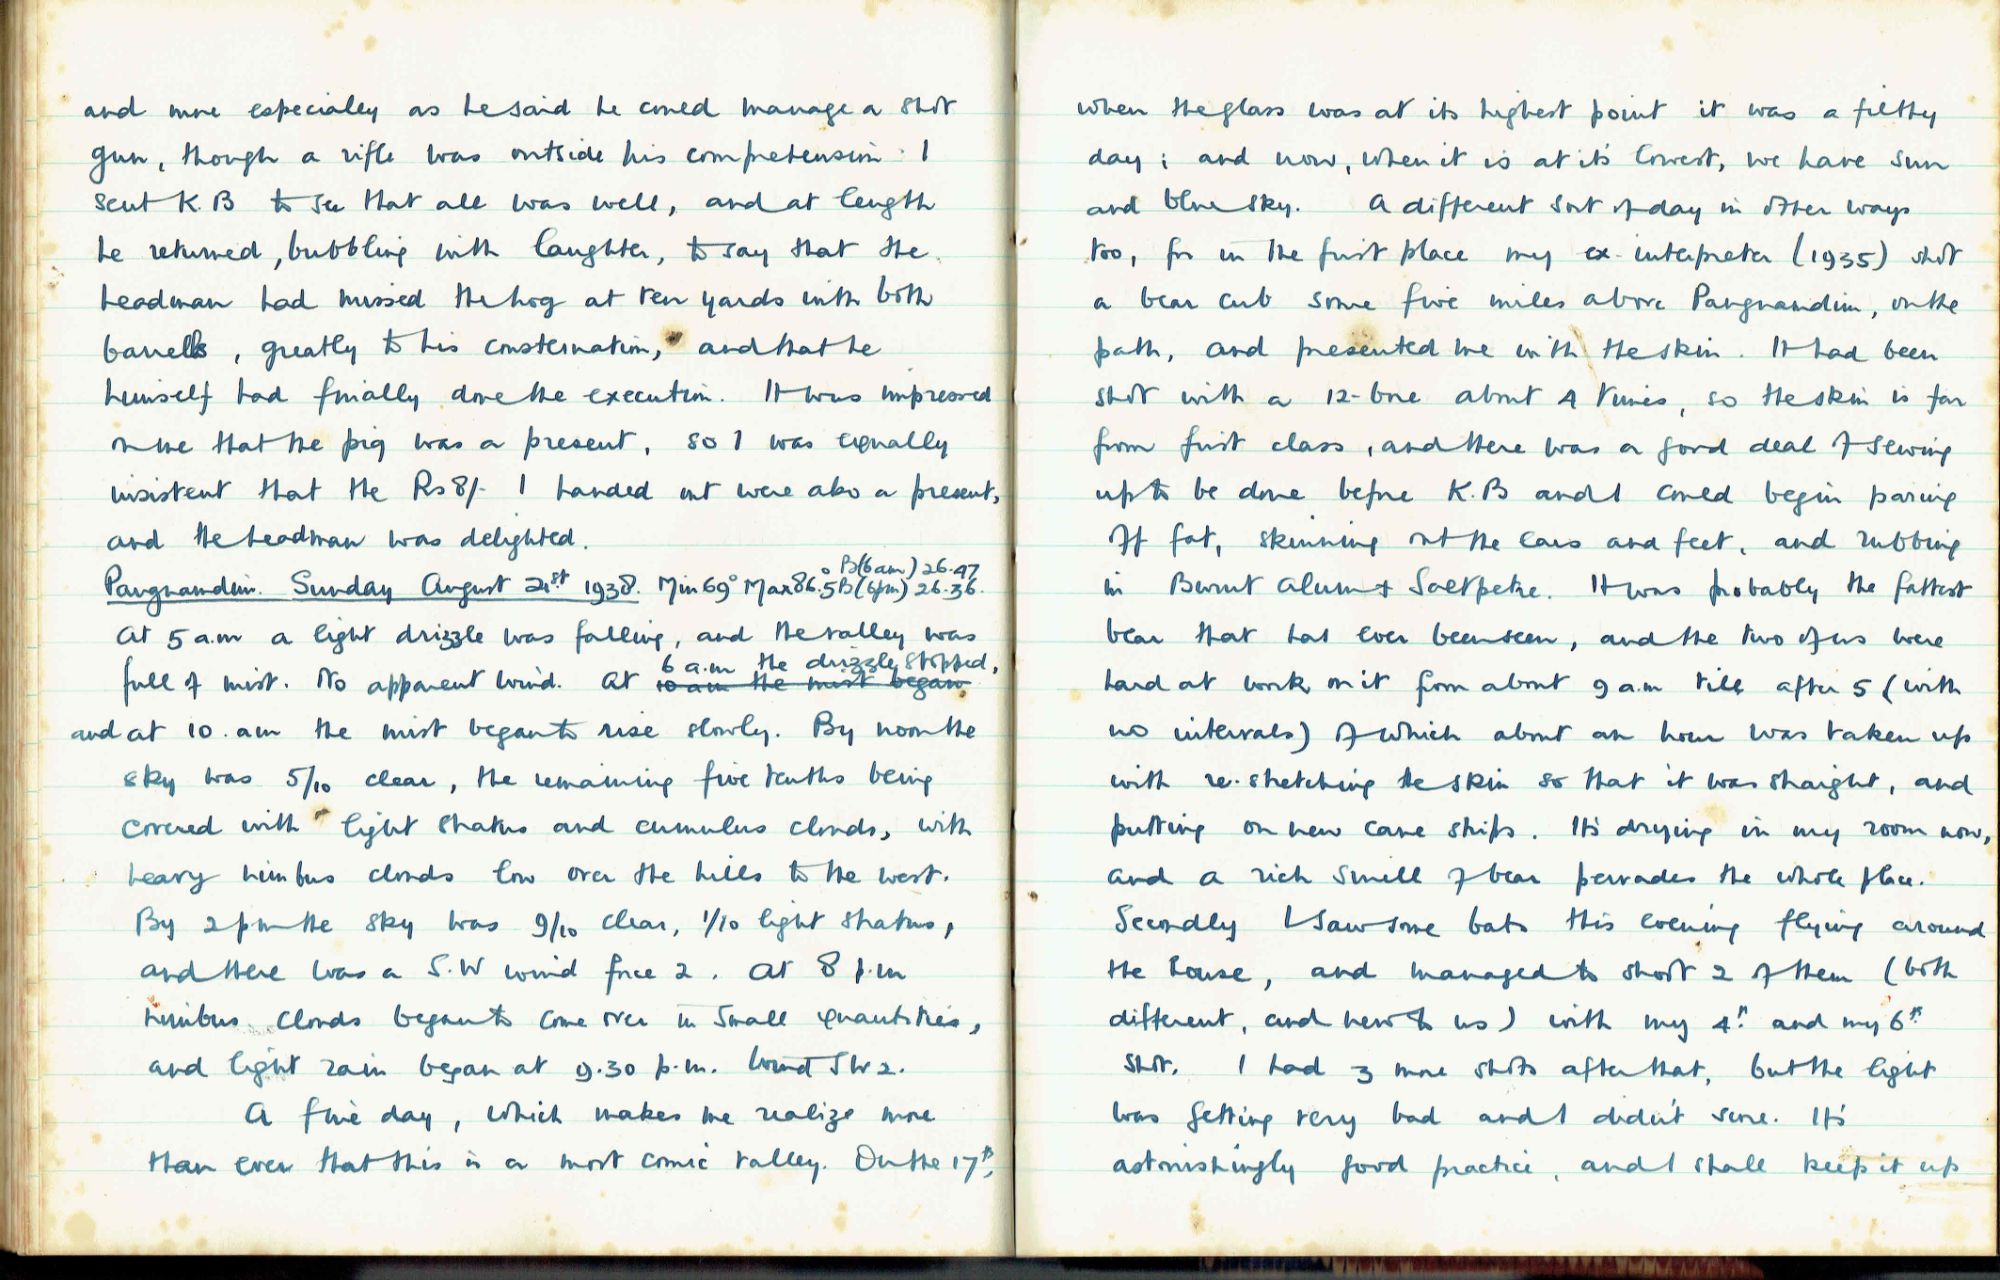 and more especialey as he said he coued manage a shot
gun, though a rifle was outside his comprehension. I
sent K.B to see that all was well, and at length
he returned, bubbling with laughter, to say that the
headman had missed the hog at ten yards with both
barrells, greatly to his consternation, and that he
himself had finially done the execution. It was impressed
on me that the pig was a present, so I was equally
insistent that the Rs 8/- I handed out were also a present,
and the headman was delighted.
Pangnamdim. Sunday August 21st 1938. Min 69° Max 86.5° B(6am) 26.47 B(6pm) 26.36.
At 5 a.m a light drizzle was falling, and the valley was
full of mist. No apparent wind. At 10 am the mist began 6 a.m the drizzle stopped,
and at 10.am the mist began to rise slowly. By noon the
sky was 5/10 clear, the remaining five tenths being
covered with light stratus and cumulus clouds, with
heavy nimbus clouds low over the hills to the west.
By 2 pm the sky was 9/10 clear, 1/10 light stratus,
and there was a S.W wind force 2. At 8 p.m
nimbus clouds began to come over in small quantities,
and light rain began at 9.30 p.m. Wind SW 2.
A fine day, which makes me realize more
than ever that this is a most comic valley. On the 17th,
when the glass was at its highest point it was a filthy
day; and now, when it is at it's lowest, we have sun
and blue sky. A different sort of day in other ways
too, for in the first place my ex-interpreter (1935) shot
a bear cub some five miles above Pangnamdim, on the
path, and presented me with the skin. It had been
shot with a 12-bore about 4 times, so the skin is far
from first class, and there was a good deal of sewing
up to be done before K.B and I coued begin paring
off fat, skinning out the ears and feet, and rubbing
in Burnt Alum + Saltpetre. It was probably the fattest
bear that has ever been seen, and the two of us were
hard at work on it from about 9 a.m till after 5 (with
no intervals) of which about an hour was taken up
with re-stretching the skin so that it was straight, and
putting on new cane strips. It's drying in my room now,
and a rich smell of bear pervades the whole place.
Secondly I saw some bats this evening flying around
the house, and managed to shoot 2 of them (both
different, and new to us) with my 4th and my 6th
shot. I had 3 more shots after that, but the light
was getting very bad and I didn't score. It's
astonishingly good practice, and I shall keep it up